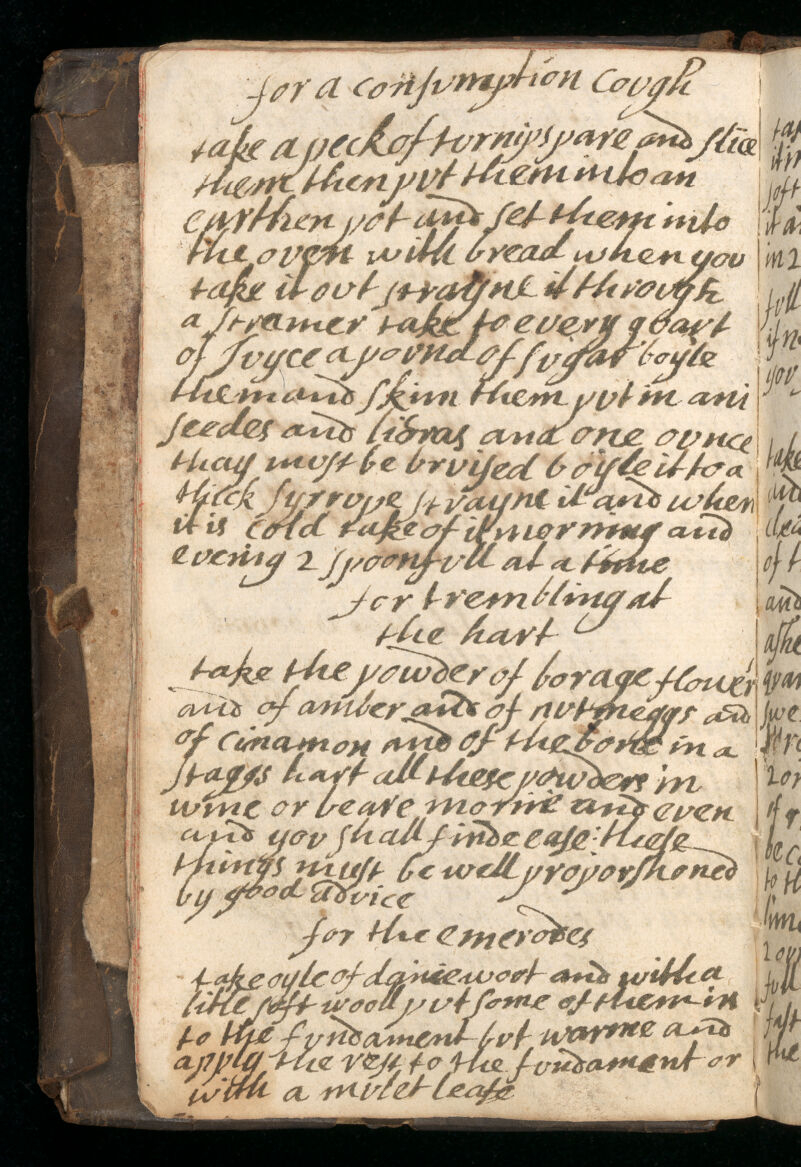 for a consumption Cough
take a peck of turnips pare and slice
them then put them into an
earthen pot and set them into
the oven with bread when you
take it out strayne it through
a strainer take to every quart
of Juyce a pound of sugar boyle
them and skim them put in ani
seedes and licoras and one ounce
thay must be bruised boyle it to a
thick syrrope strayne it and when
it is cold take of it morning and
evening 2 spoonfull at a time
for trembling at
the hart
take the powder of borage flower
and of amber and of nutmeggs and
of cinamon and of the bone in a
staggs hart all these powders in
wine or beare morne and even
and you shall finde ease: these
things must be well proporshoned
by good advice
for the emerodes
take oyle of danewoot and with a
litle soft wooll put some of them in
to the fundament but warme and
apply the rest to the fundament or
with a mulet leafe